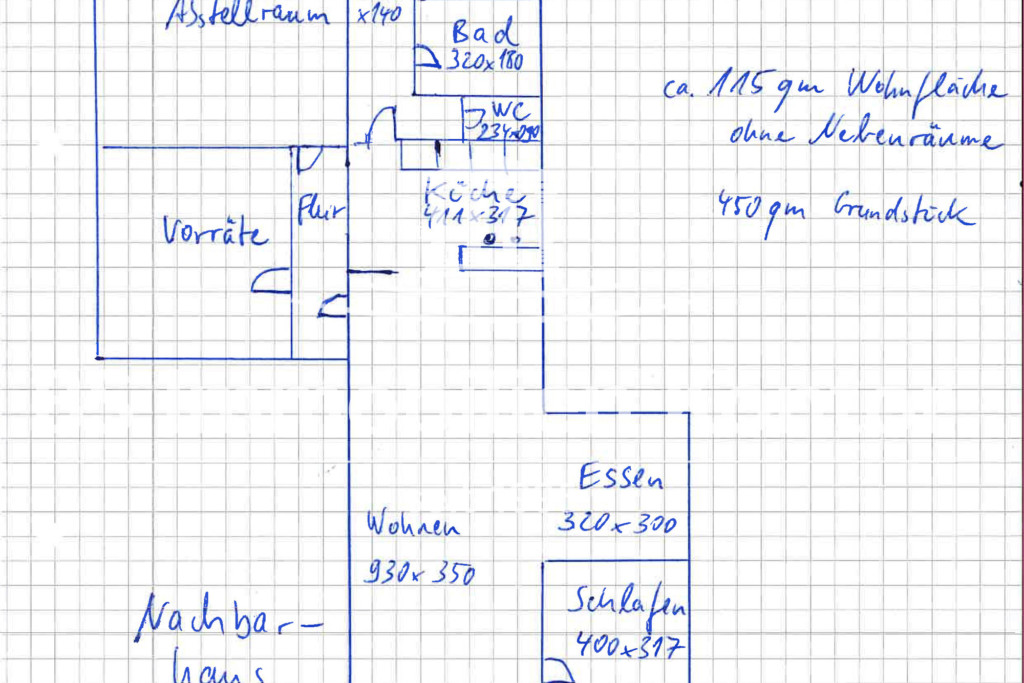 Abstellraum
x140
Bad
320x180
WC
ca. 115 qm Wohnfläche
ohne Nebenräume
450 qm Grundstück
Küche
411x317
Flur
Vorräte
Essen
320x300
Wohnen
930x350
Schlafen
400x317
Nachbar-
haus